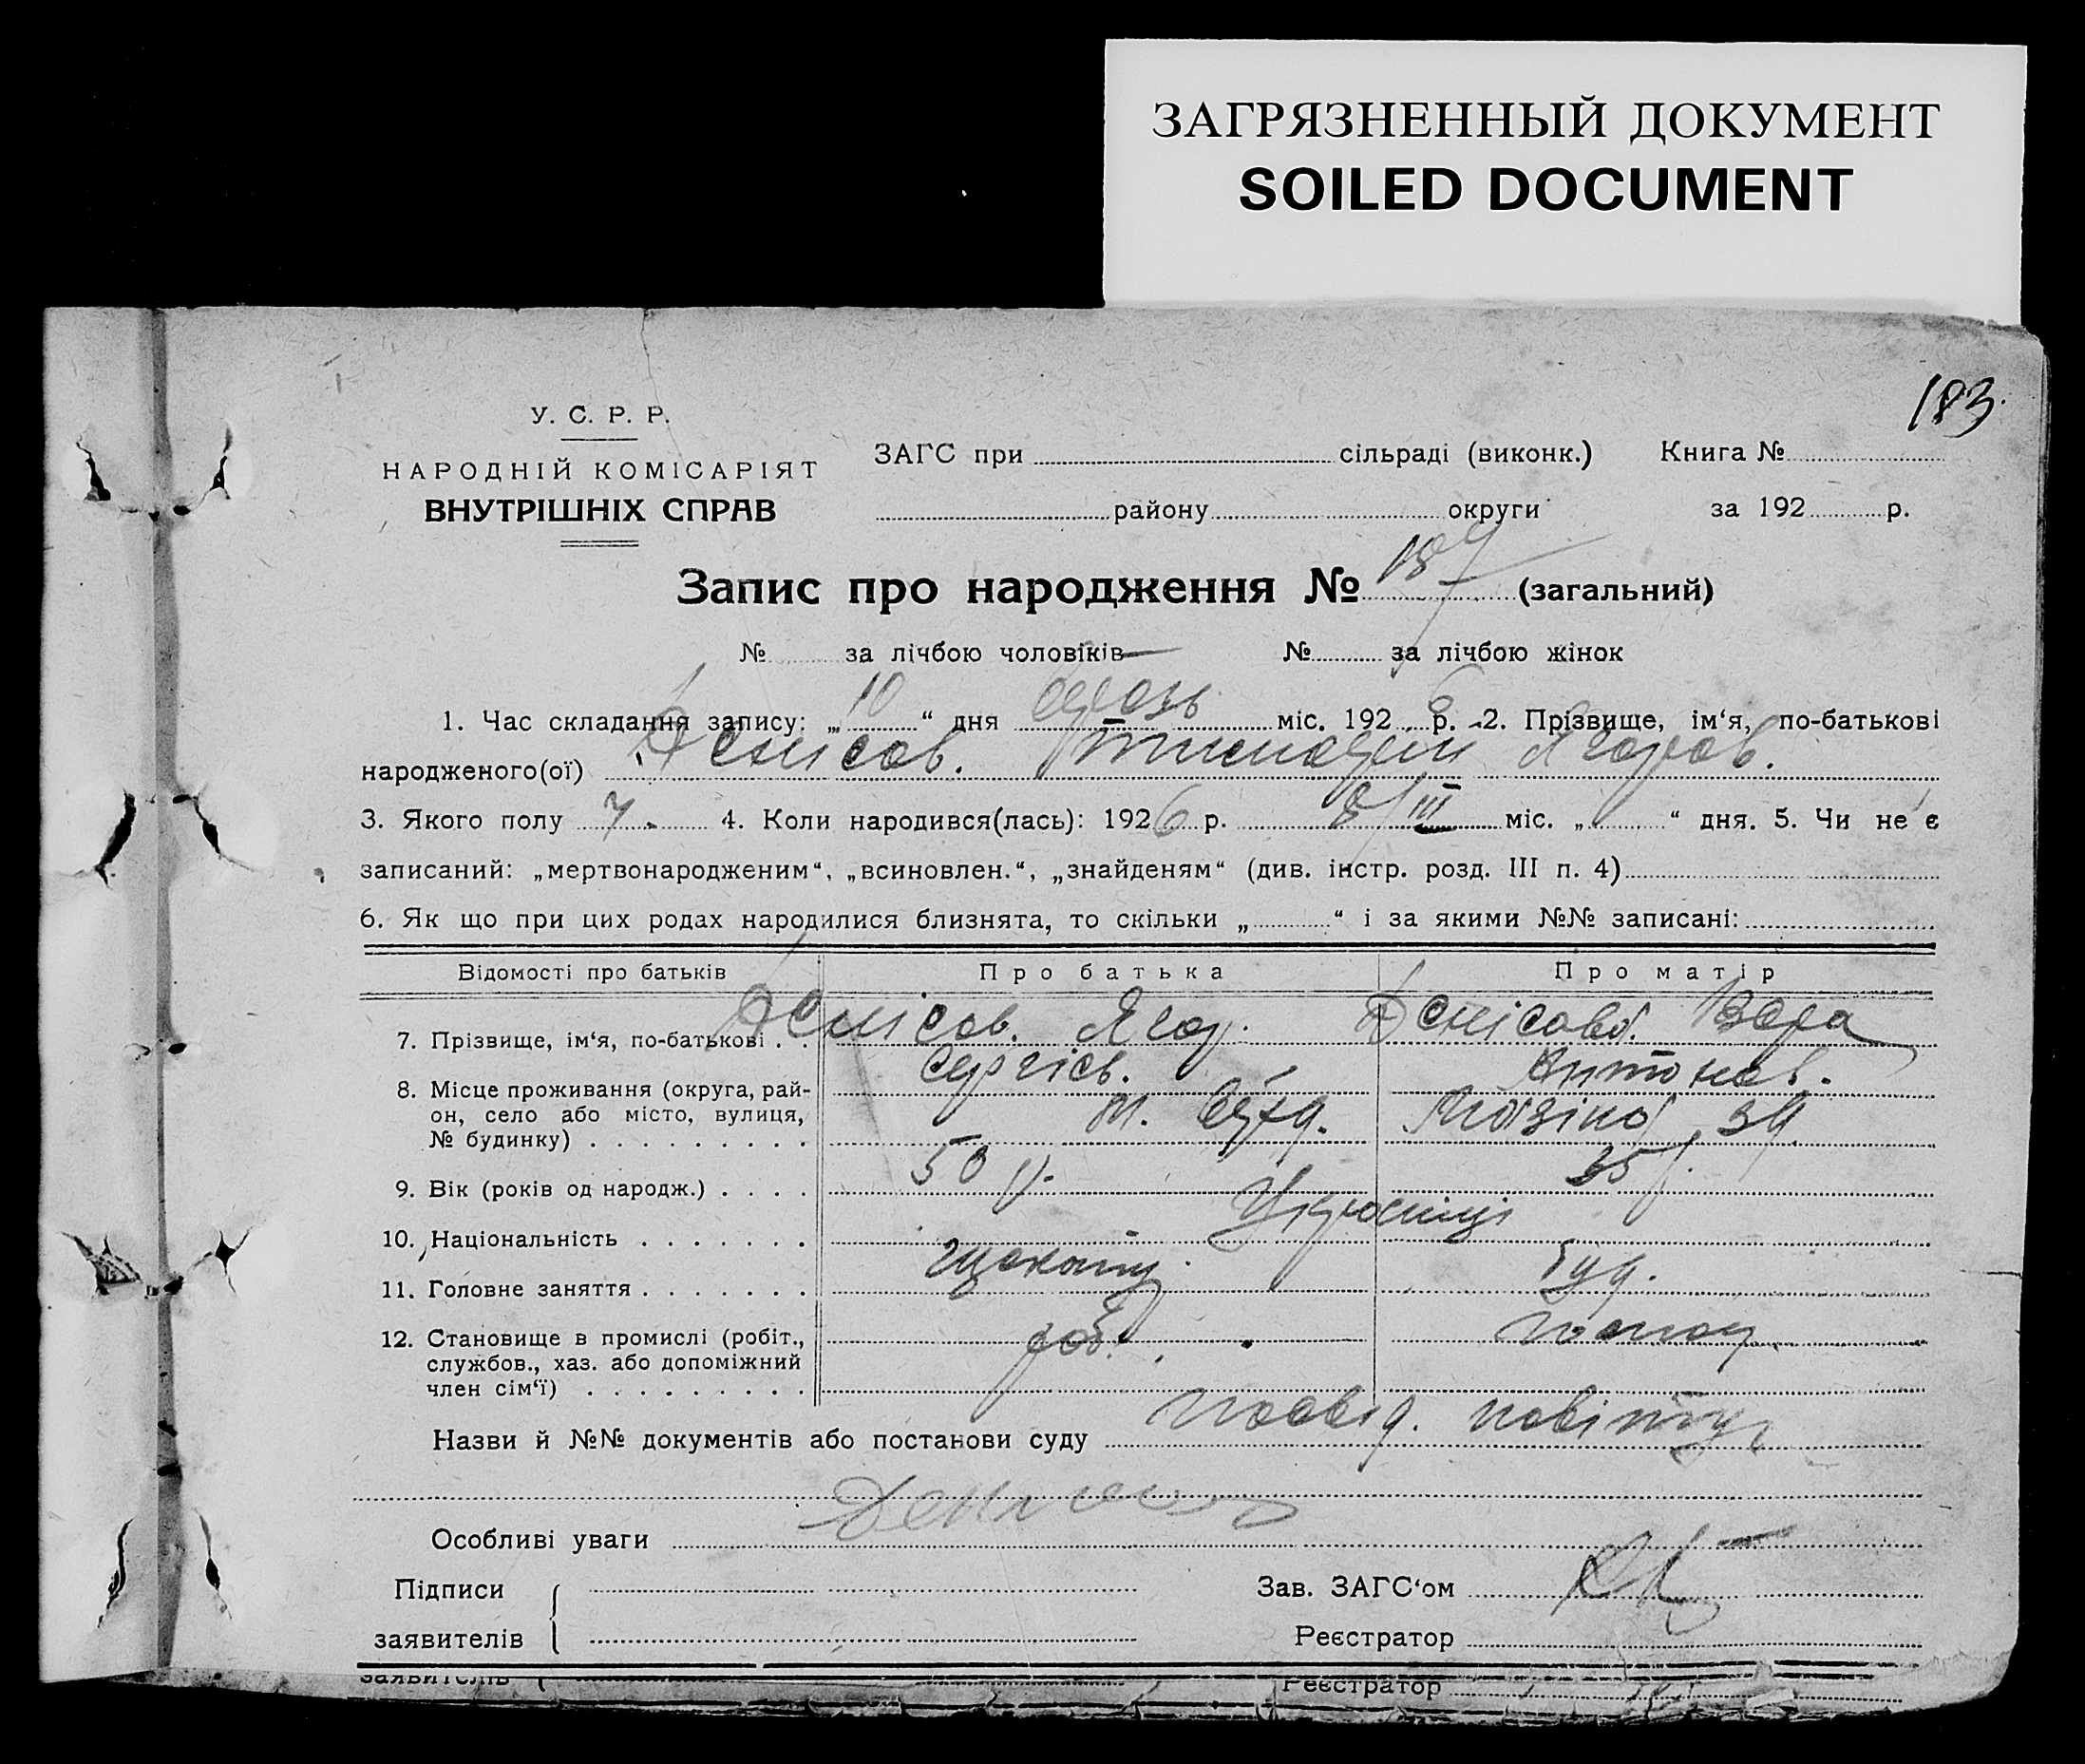 ЗАГРЯЗНЕННЫЙ ДОКУМЕНТ
SOILED DOCUMENT
183.
У. С. Р. Р.
НАРОДНІЙ КОМІСАРІЯТ
ВНУТРІШНІХ СПРАВ
ЗАГС при сільраді (виконк.) Книга №
району округи за 192 р.
Запис про народження № (загальний)
№ за лічбою чоловіків № за лічбою жінок
1. Час складання запису: „10“ дня міс. 1926 р. 2. Прізвище, ім‘я, по-батькові
народженого(ої) Денісов. Ягоров.
3. Якого полу ч. 4. Коли народився(лась): 1926 р. 8/III міс. „ “ дня. 5. Чи не є
записаний: „мертвонародженим“, „всиновлен.“, „знайденям“ (див. інстр. розд. III п. 4)
6. Як що при цих родах народилися близнята, то скільки „ “ і за якими №№ записані:
Відомості про батьків Про батька Про матір
7. Прізвище, ім‘я, по-батькові . . Денісов. Ягор. Денісова. Вера
Сергієв. Антонов.
8. Місце проживання (округа, рай-
он, село або місто, вулиця,
№ будинку) . . . . . . . . .
9. Вік (років од народж.) . . . . 50 р. 35 р.
10. Національність . . . . . . . Українці
11. Головне заняття . . . . . . .
12. Становище в промислі (робіт., роб.
службов., хаз. або допоміжний
член сім‘ї) . . . . . . . . .
Назви й №№ документів або постанови суду посвід.
Особливі уваги
Підписи Зав. ЗАГС‘ом
заявителів Реєстратор
заявителів Реєстратор